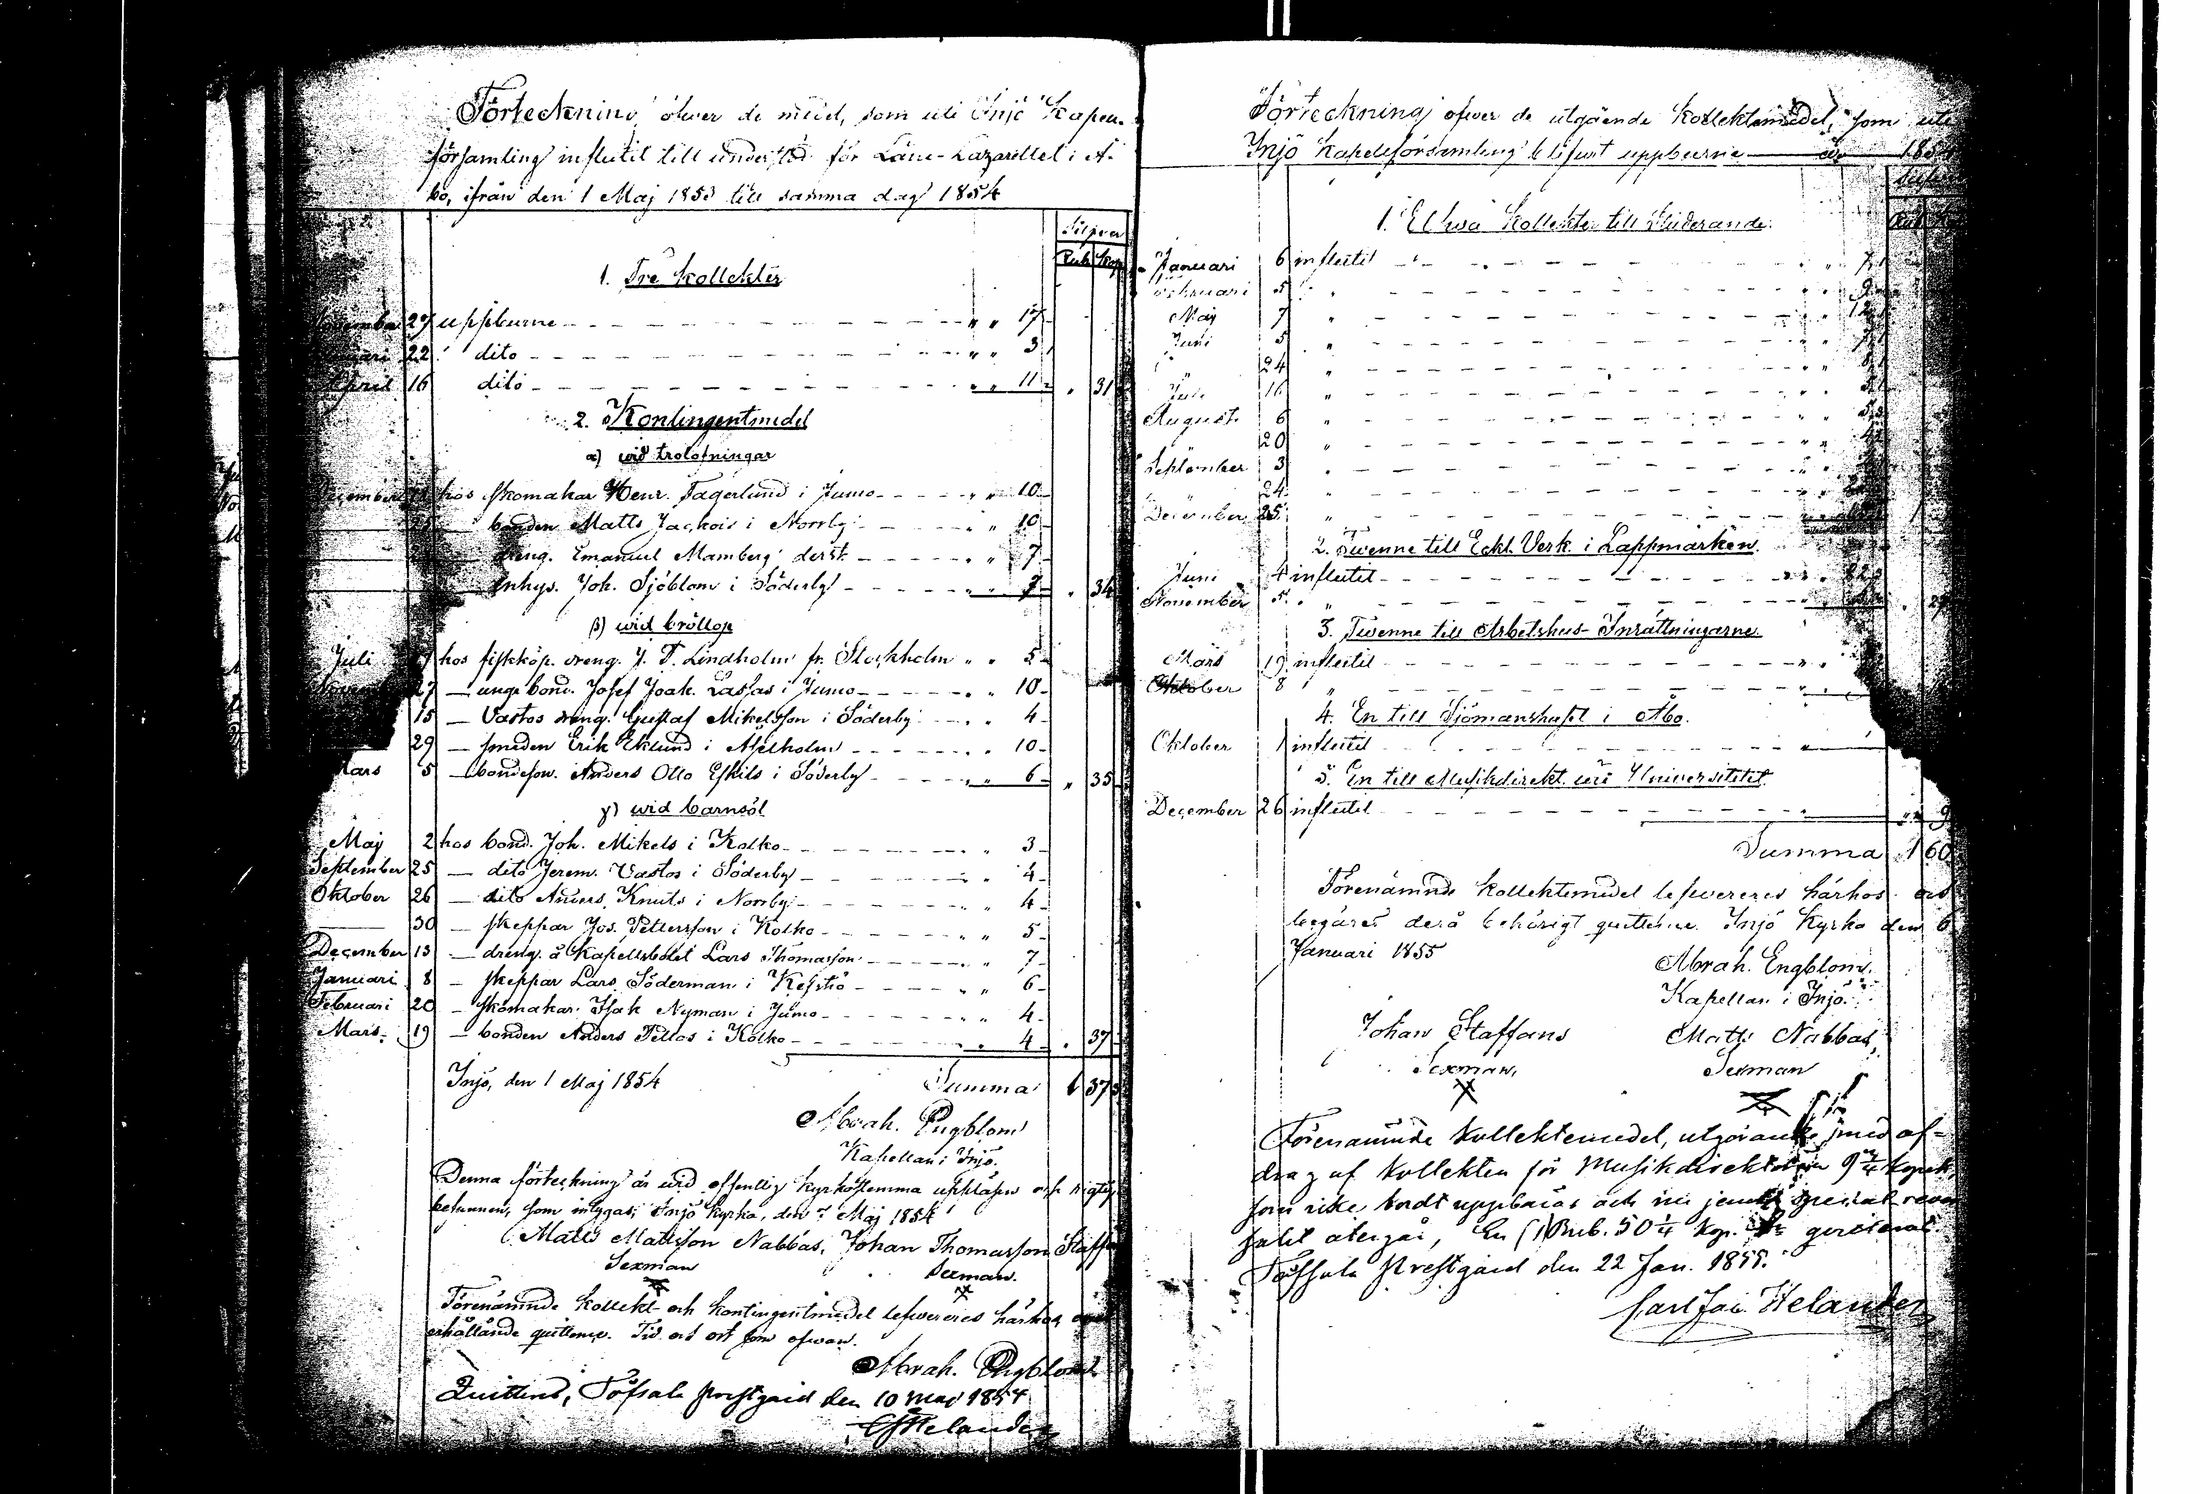 Förteckning öfwer de medel, som uti Injö Kapell-
församling influtit till understöd för Läns-Lazarettet i Å-
bo, ifrån den 1 Maj 1853 till samma dag 1854
Silfver
Rub. Kop.
1. Tre Kollekter
27 uppburne - - - " " 17
22 dito - - - " " 3
April 16 dito - - - " " 11 " 31
2. Kontingentmedel
α) wid trolofningar
December hos skomakar Henr. Fagerlund i Jumo - - - " " 10
— bonden Matts Jackois i Norrby - - - " " 10
— dreng. Emanuel Mamberg derst. - - - " " 7
Inhys. Joh. Sjöblom i Söderby - - - " " 7 " 34
β) wid bröllop
Juli hos fiskköp. dreng. J. F. Lindholm fr. Stockholm " " 5
27 — unge bond. Josef Joak. Lassas i Jumo - - - " " 10
15 — Vastos dreng. Gustaf Mikelsson i Söderby - - - " 4
29 — smeden Erik Eklund i Åselholm - - - " 10
Mars 5 — bondeson. Anders Otto Eskils i Söderby - - - " " 6 " 35
γ) wid barnsöl
Maj 2 hos bond. Joh. Mikels i Kolko - - - " " 3
September 25 — dito Jerem. Vastos i Söderby - - - " 4
Oktober 26 — dito Anders Knuts i Norrby - - - " " 4
30 — skeppar Jos. Pettersson i Kolko - - - " " 5
December 13 — dreng. å Kapellsbolet Lars Thomasson - - - " " 7
Januari 8 — skeppar Lars Söderman i Kejstiö - - - " " 6
Februari 20 — skomakar Isak Nyman i Jumo - - - " " 4
Mars 19 — bonden Anders Tellas i Kolko - - - " 4 " 37
Injö, den 1 Maj 1854 Summa 1 37
Abrah. Engblom
Kapellan i Injö.
Denna förteckning är wid offentlig Kyrkostemma uppläsen och rigtig
befunnen, som intygas; Injö Kyrka, den 7 Maj 1854
Matts Mattsson Nabbas, Johan Thomasson Staffans
Sexman Sexman.
Förenämnde Kollekt- och Kontingentmedel lefwereres härhos
erhållande quittence. Tid och ort som ofwan.
Abrah. Engblom
Quitteras, Töfsala prestgård den 10 Maj 1854
CJHelander
Förteckning öfwer de utgående Kollektmedel, som uti
Injö Kapellförsamling blifwit uppburne — år 1854
1. Elfwa Kollekter till Studerande.
Januari 6 influtit - - -
Februari 5 " - - -
Maj 7 " - - -
Juni 5 " - - -
24 " - - -
Juli 16 " - - -
Augusti 6 " - - -
20 " - - -
September 3 " - - -
24 " - - -
December 25 " - - -
2. Twenne till Eckl. Verk. i Lappmarken.
Juni 4 influtit - - -
November 5 " - - -
3. Twenne till Arbetshus-Inrättningarne.
Mars 19 influtit - - -
Oktober 8 " - - -
4. En till Sjömanshuset i Åbo.
Oktober 1 influtit - - -
5. En till Musikdirekt. wid Universitetet
December 26 influtit - - - 9
Summa 1 60
Förenämnde Kollektmedel lefwereres härhos och
begäres derå behörigt quittence. Injö Kyrka den 6
Januari 1855
Abrah. Engblom.
Kapellan i Injö.
Johan Staffans Matts Nabbas,
Sexman, Sexman
Förenämnde Kollektemedel, utgörande med af-
drag af Kollekten för Musikdirektören 9 3/4 kopek,
som icke bordt uppbäras och
återgår, En (1) Rub. 50 1/4 kop. quitteras
Töfsala Prestgård den 22 Jan. 1855.
Carl Jac. Helander